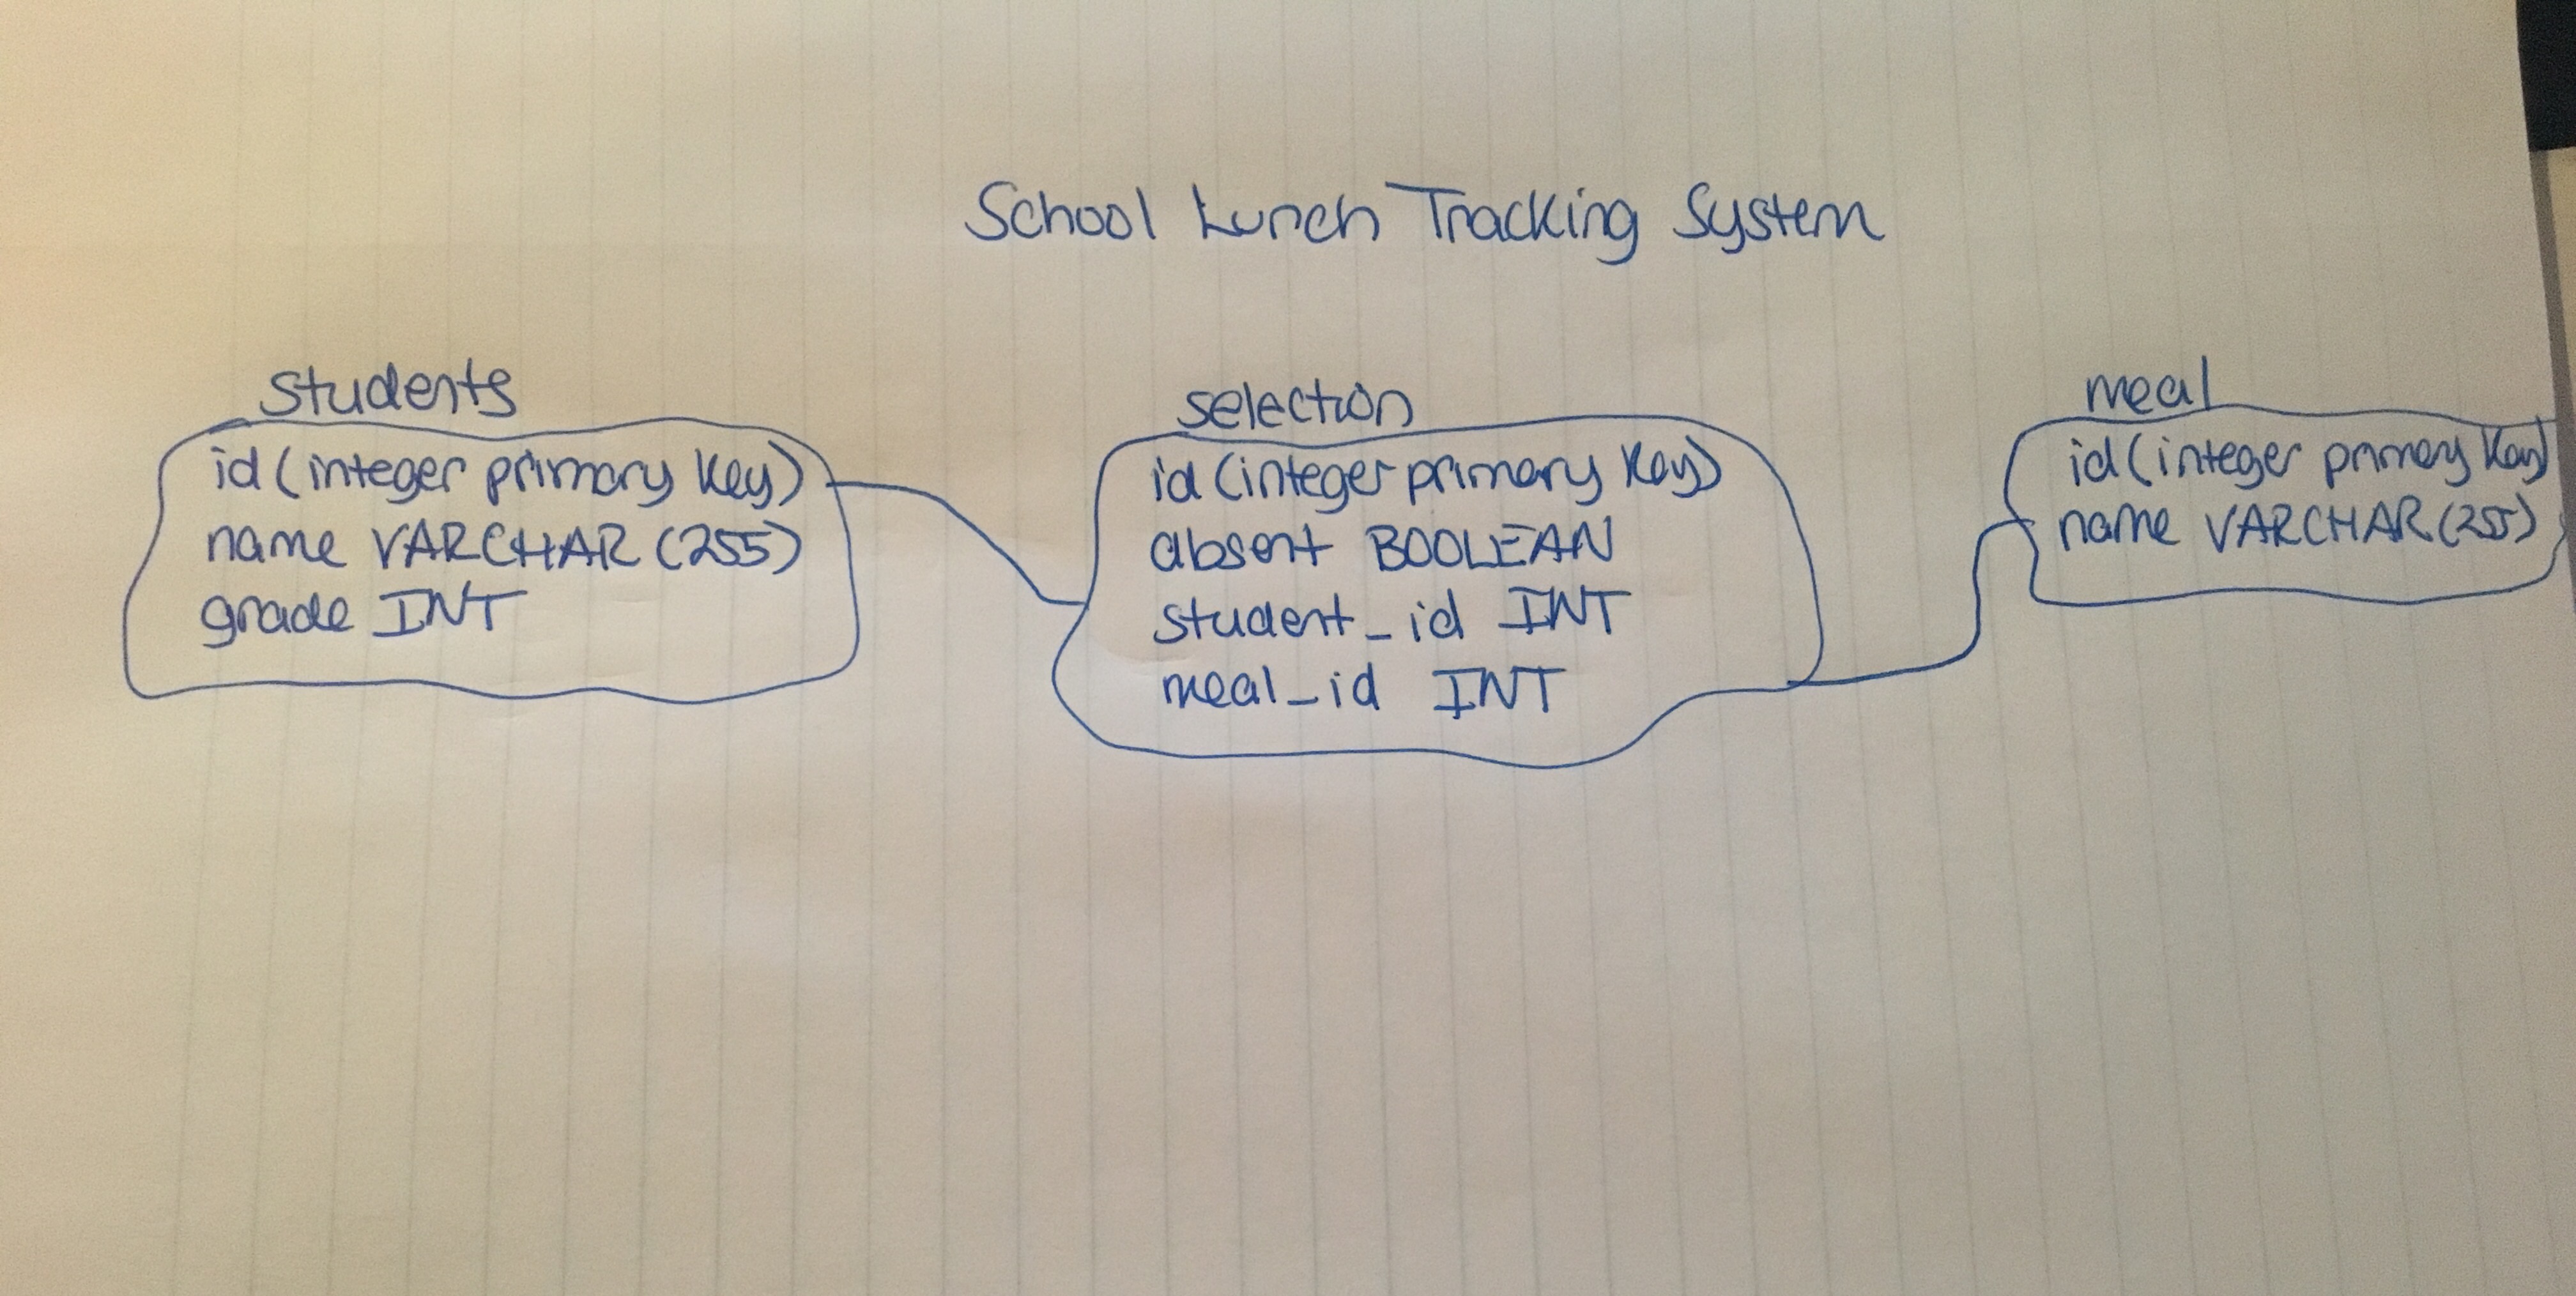 School Lunch Tracking System
students
id (integer primary key)
name VARCHAR (255)
grade INT
selection
id (integer primary key)
absent BOOLEAN
student_id INT
meal_id INT
meal
id (integer primary key)
name VARCHAR (255)